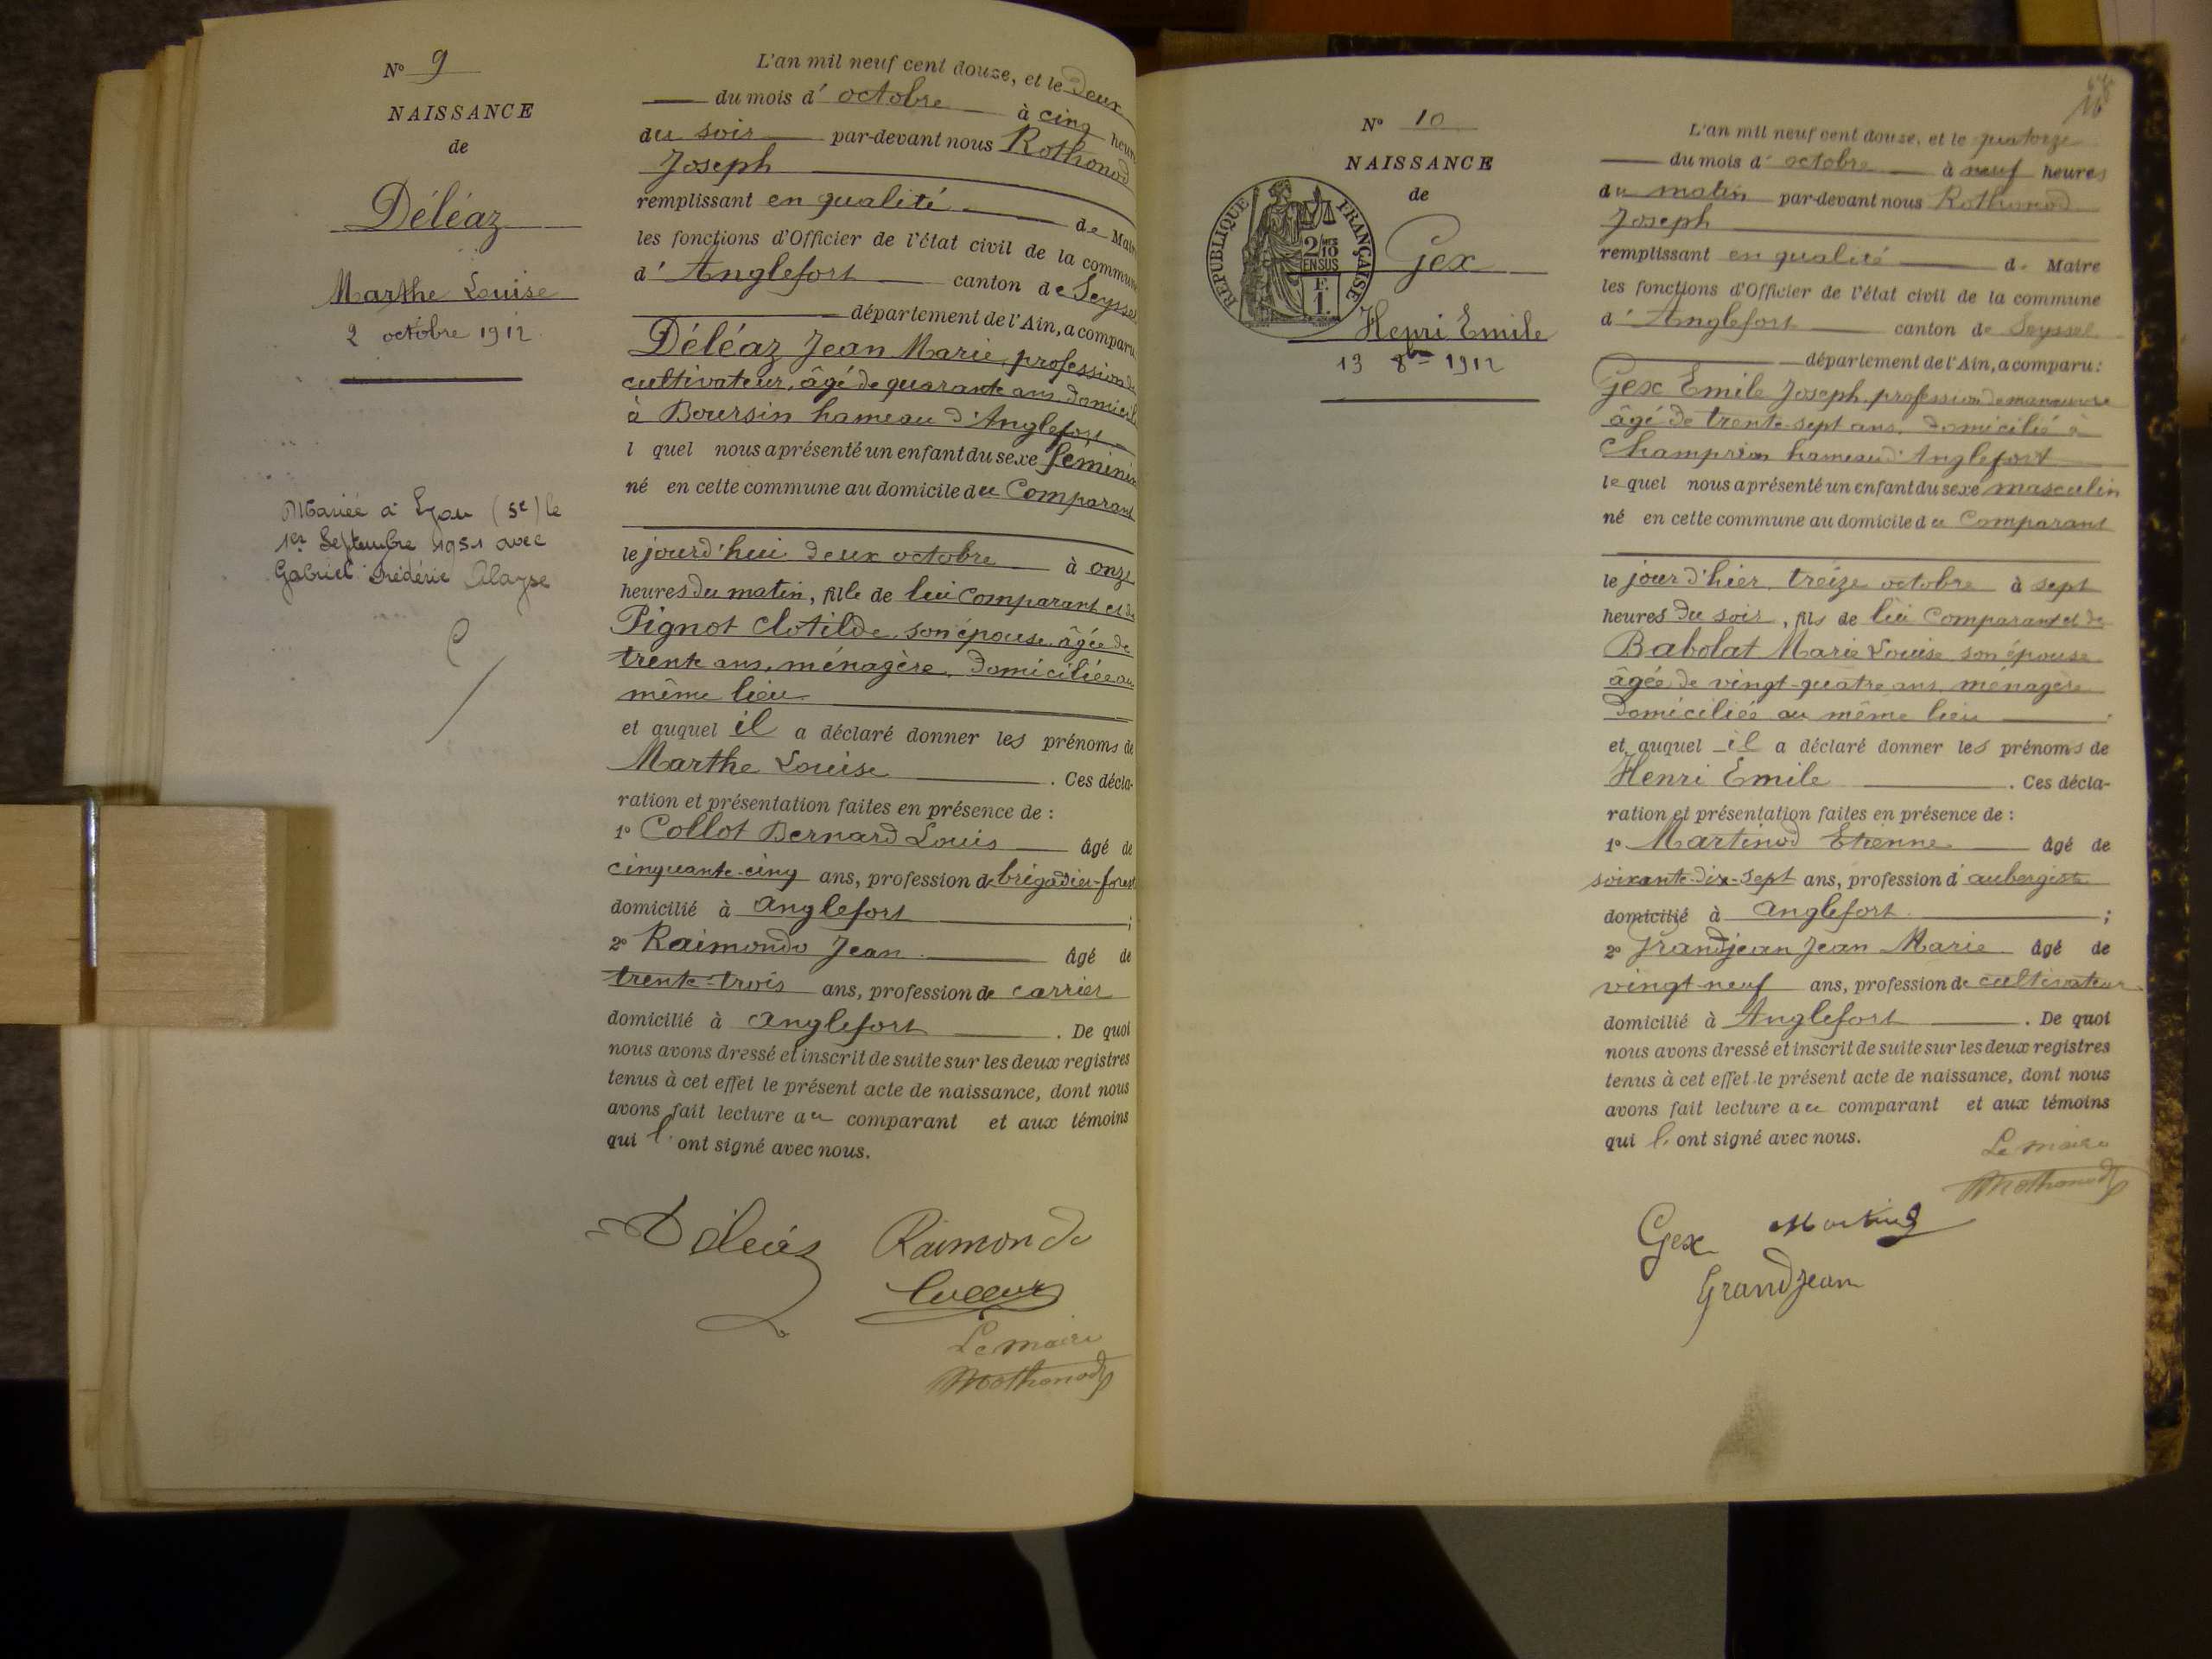 N° 9
NAISSANCE
de
Déléaz
Marthe Louise
2 octobre 1912
Mariée à Lyon (5e) le
1er Septembre 1951 avec
Gabriel Frédéric
L'an mil neuf cent douze, et le deux
du mois d'octobre à cinq heures
du soir par-devant nous Rothonod
Joseph
remplissant en qualité de Maire
les fonctions d'Officier de l'état civil de la commune
d'Anglefort canton de Seyssel
département de l'Ain, a comparu
Déléaz Jean Marie, profession de
cultivateur, âgé de quarante ans domicilié
à Boursin hameau d'Anglefort
l quel nous a présenté un enfant du sexe féminin
né en cette commune au domicile du Comparant
le jourd'hui deux octobre à onze
heures du matin, fille de lui Comparant et de
Pignot Clotilde, son épouse, âgée de
trente ans, ménagère, domiciliée au
même lieu
et auquel il a déclaré donner les prénoms de
Marthe Louise. Ces décla-
ration et présentation faites en présence de :
1° Collot Bernard Louis âgé de
cinquante-cinq ans, profession de brigadier-forest
domicilié à Anglefort ;
2° Raimondo Jean âgé de
trente-trois ans, profession de carrier
domicilié à Anglefort. De quoi
nous avons dressé et inscrit de suite sur les deux registres
tenus à cet effet le présent acte de naissance, dont nous
avons fait lecture au comparant et aux témoins
qui l'ont signé avec nous.
Déléaz Raimondo
Le maire
Rothonod
N° 10
NAISSANCE
de
RÉPUBLIQUE FRANÇAISE
2/10
EN SUS
F.
1.
Gex
Henri Emile
13 8bre 1912
L'an mil neuf cent douze, et le quatorze
du mois d'octobre à neuf heures
du matin par-devant nous Rothonod
Joseph
remplissant en qualité de Maire
les fonctions d'Officier de l'état civil de la commune
d'Anglefort canton de Seyssel
département de l'Ain, a comparu :
Gex Emile Joseph, profession de manœuvre
âgé de trente-sept ans, domicilié à
Champrion hameau d'Anglefort
le quel nous a présenté un enfant du sexe masculin
né en cette commune au domicile du Comparant
le jour d'hier, treize octobre à sept
heures du soir, fils de lui Comparant et de
Babolat Marie Louise son épouse
âgée de vingt-quatre ans ménagère
domiciliée au même lieu
et auquel il a déclaré donner les prénoms de
Henri Emile. Ces décla-
ration et présentation faites en présence de :
1° Martinod Etienne âgé de
soixante-dix-sept ans, profession d'aubergiste
domicilié à Anglefort ;
2° Grandjean Jean Marie âgé de
vingt-neuf ans, profession de cultivateur
domicilié à Anglefort. De quoi
nous avons dressé et inscrit de suite sur les deux registres
tenus à cet effet le présent acte de naissance, dont nous
avons fait lecture au comparant et aux témoins
qui l'ont signé avec nous.
Le maire
Rothonod
Gex Martinod
Grandjean